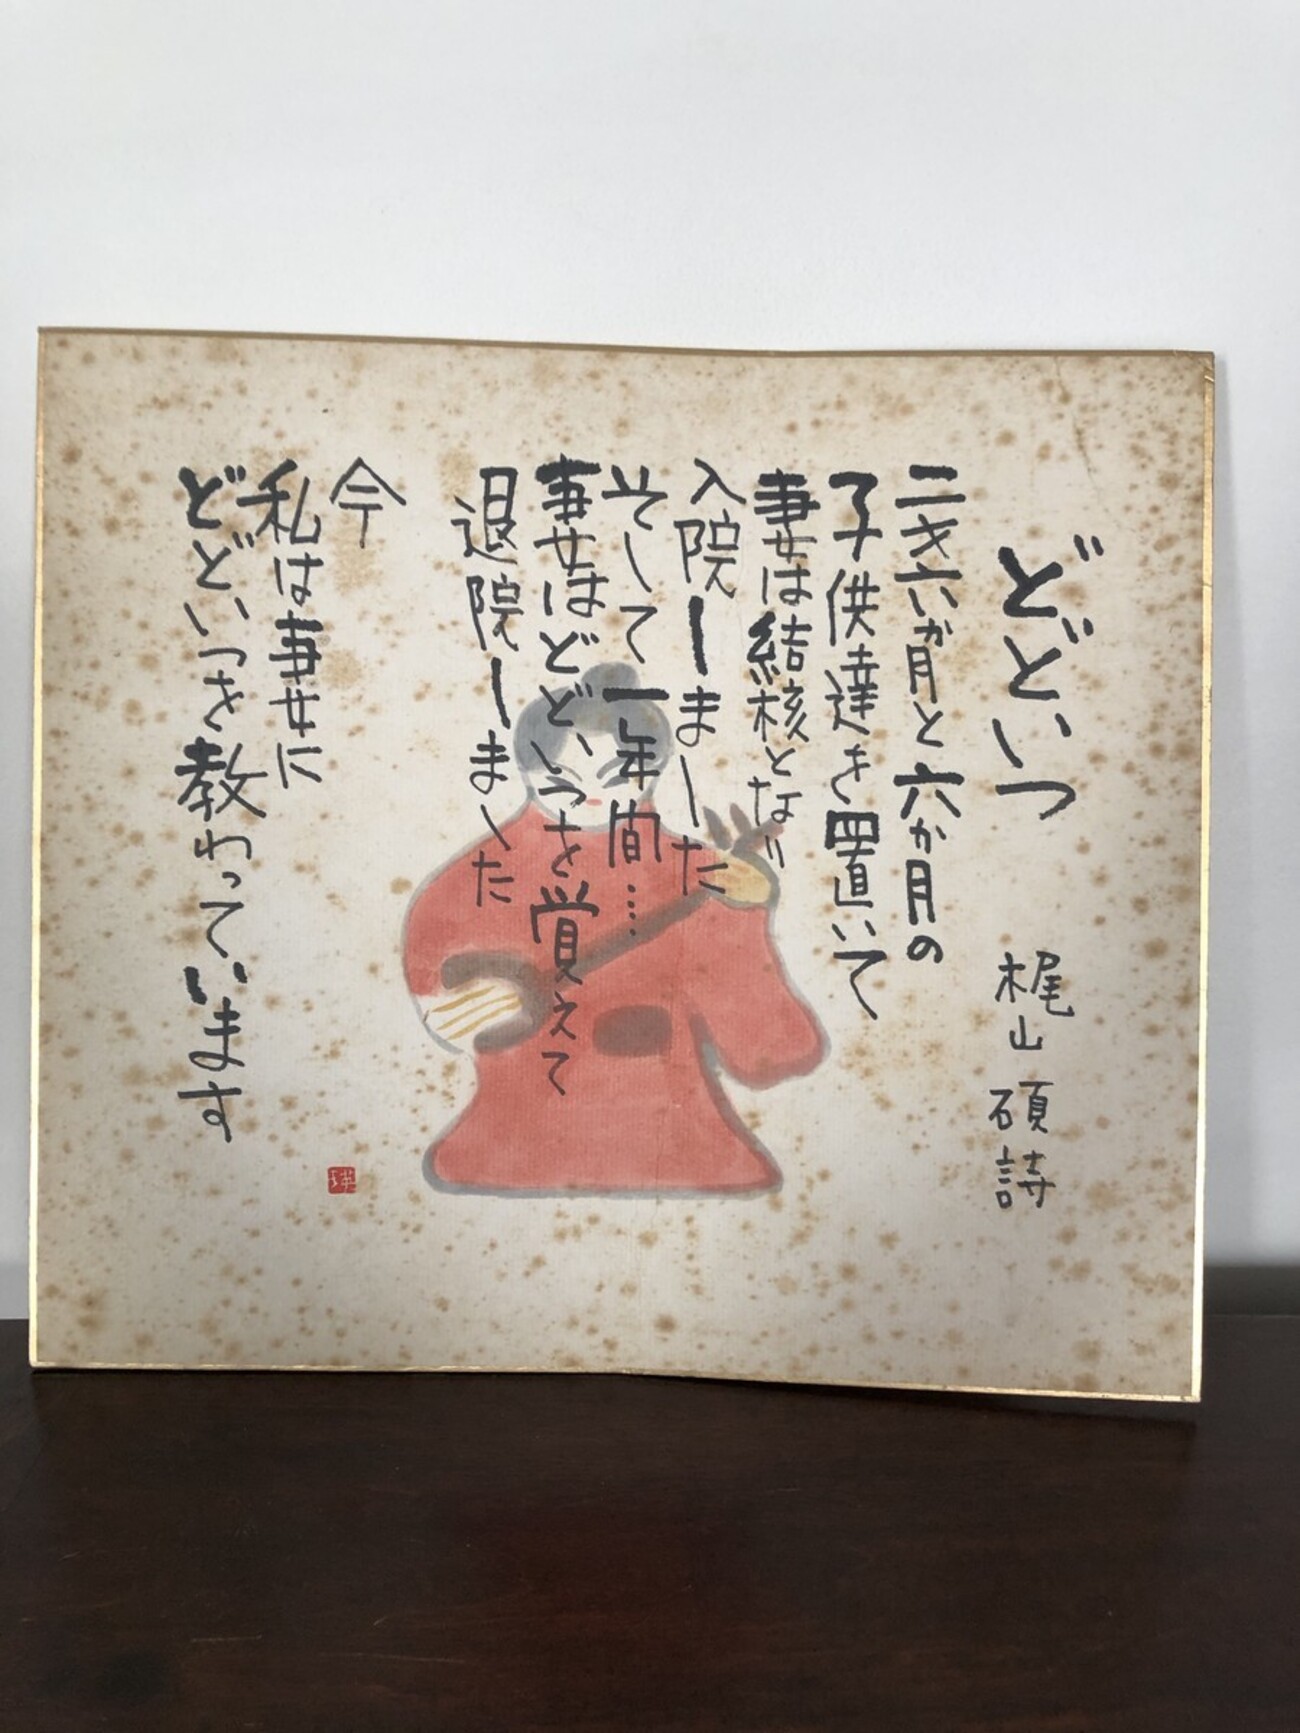 どどいつ
梶山 碩詩
二才六ヵ月と六か月の
子供達を置いて
妻は結核となり
入院しました
そして一年間‥‥
妻はどどいつを覚えて
退院しました
今
私は妻に
どどいつを教わっています